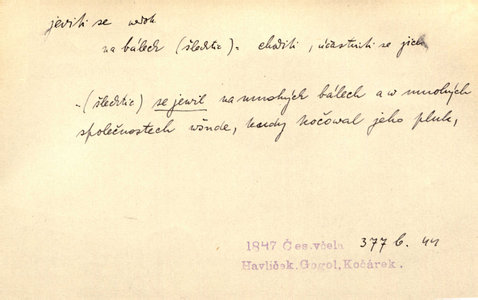 jeviti se nedok
na bálech (šlechtic). choditi, účastniti se jich
- (šlechtic) se jewil na mnohých bálech a w mnohých
společnostech wšude, kudy kočowal jeho pluk,
1847 Čes.včela 377 b.
Havlíček, Gogol, Kočárek.